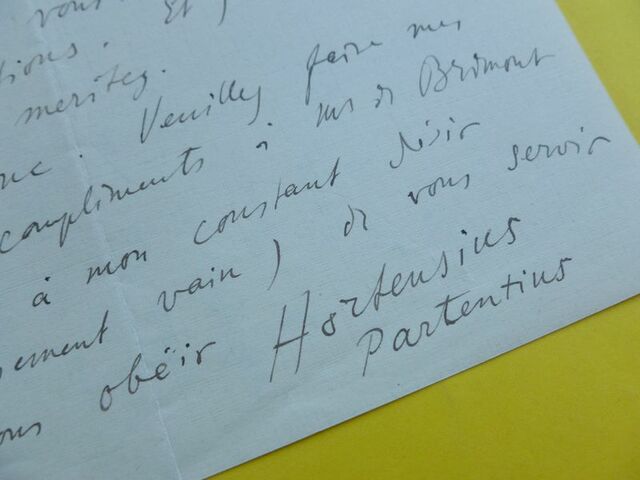 vous
tions. Et
meritez.
Veuillez faire mes
compliments à
de Brimont
à mon constant désir
vain) de vous servir
obëir Hortensius
Partentius